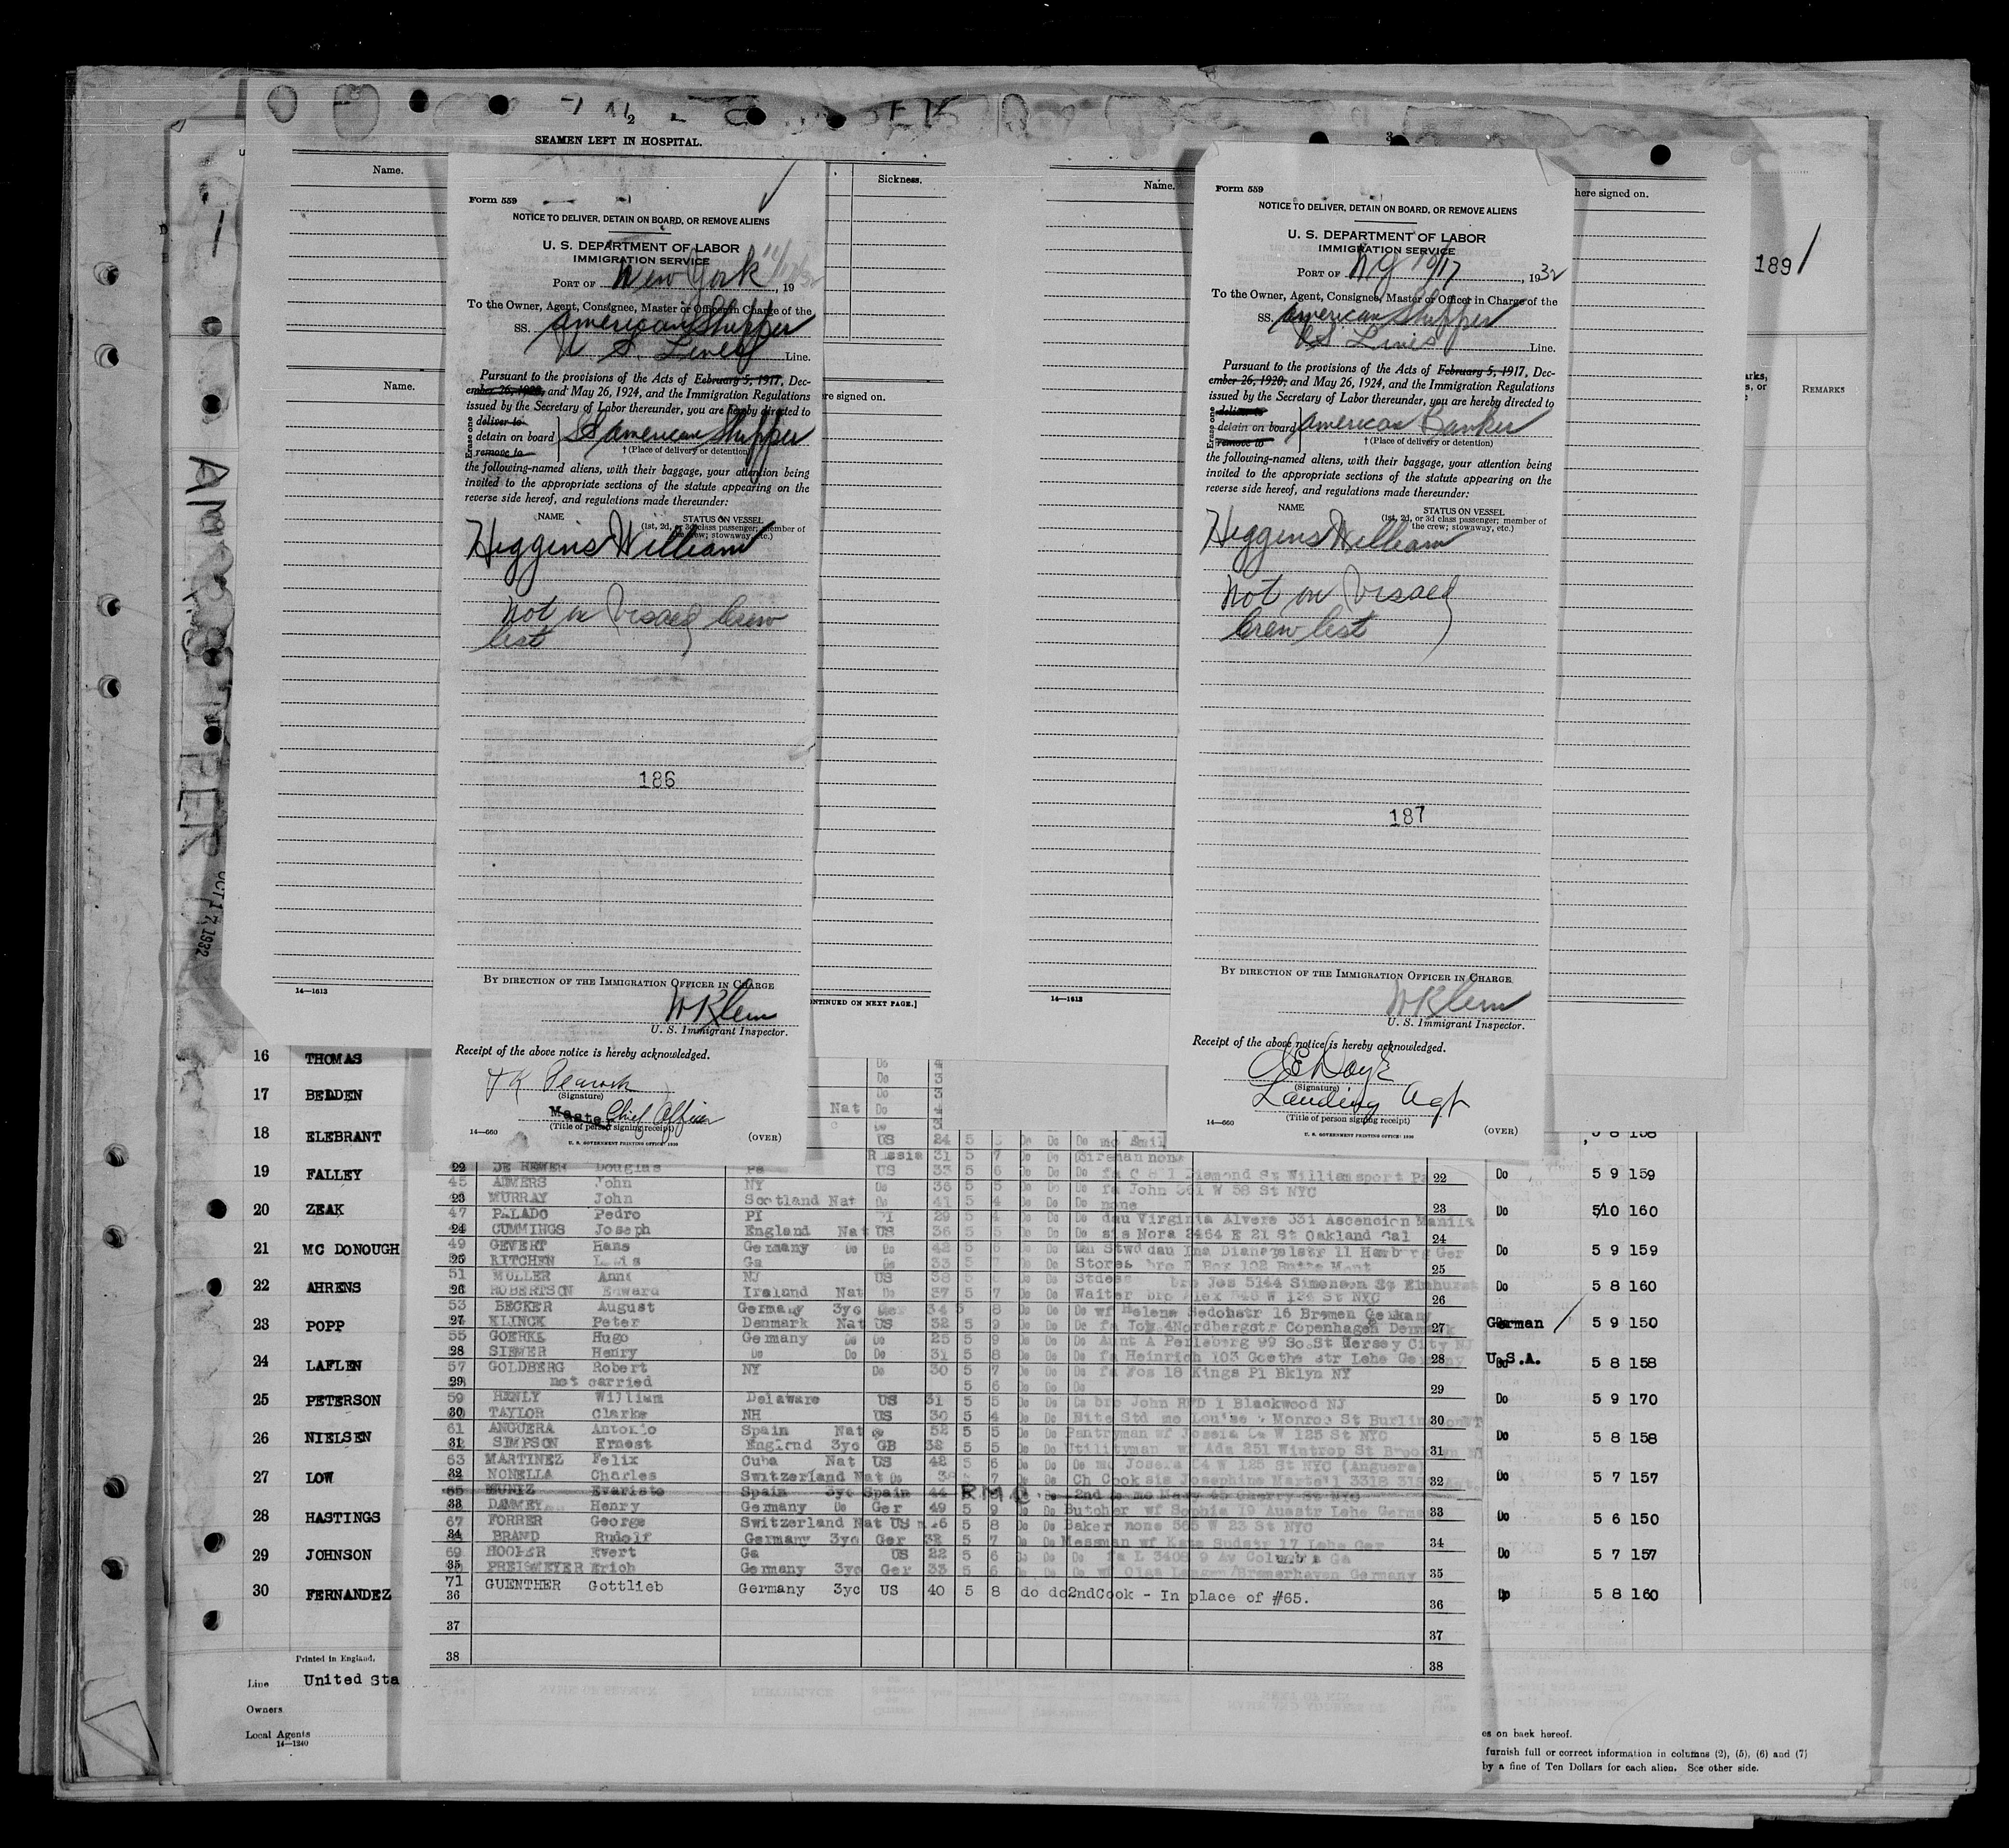 SEAMEN LEFT IN HOSPITAL.
Name.
Sickness.
Name.
re signed on.
14—1613
ONTINUED ON NEXT PAGE.]
Form 559
NOTICE TO DELIVER, DETAIN ON BOARD, OR REMOVE ALIENS
U. S. DEPARTMENT OF LABOR
IMMIGRATION SERVICE
PORT OF New York, 19
To the Owner, Agent, Consignee, Master or Officer in Charge of the
SS. American Shipper
U. S. Lines Line.
Pursuant to the provisions of the Acts of February 5, 1917, Dec-
ember 26, 1920, and May 26, 1924, and the Immigration Regulations
issued by the Secretary of Labor thereunder, you are hereby directed to
Erase one
deliver to
detain on board SS American Shipper
remove to
† (Place of delivery or detention)
the following-named aliens, with their baggage, your attention being
invited to the appropriate sections of the statute appearing on the
reverse side hereof, and regulations made thereunder:
NAME STATUS ON VESSEL
(1st, 2d, or 3d class passenger; member of
the crew; stowaway, etc.)
Higgins William
Not on Visaed Crew
list
186
BY DIRECTION OF THE IMMIGRATION OFFICER IN CHARGE
W Klem
U. S. Immigrant Inspector.
Receipt of the above notice is hereby acknowledged.
(Signature)
Master Chief Officer
(Title of person signing receipt)
14—660
U. S. GOVERNMENT PRINTING OFFICE: 1930
(OVER)
3
Name.
here signed on.
14—1613
Form 559
NOTICE TO DELIVER, DETAIN ON BOARD, OR REMOVE ALIENS
U. S. DEPARTMENT OF LABOR
IMMIGRATION SERVICE
PORT OF NY 10/17, 1932
To the Owner, Agent, Consignee, Master or Officer in Charge of the
SS. American Shipper
US Lines Line.
Pursuant to the provisions of the Acts of February 5, 1917, Dec-
ember 26, 1920, and May 26, 1924, and the Immigration Regulations
issued by the Secretary of Labor thereunder, you are hereby directed to
Erase one
deliver to
detain on board American Banker
remove to
† (Place of delivery or detention)
the following-named aliens, with their baggage, your attention being
invited to the appropriate sections of the statute appearing on the
reverse side hereof, and regulations made thereunder:
NAME STATUS ON VESSEL
(1st, 2d, or 3d class passenger; member of
the crew; stowaway, etc.)
Higgins William
Not on Visaed
Crew list
187
BY DIRECTION OF THE IMMIGRATION OFFICER IN CHARGE
W Klem
U. S. Immigrant Inspector.
Receipt of the above notice is hereby acknowledged.
(Signature)
Landing Agt
(Title of person signing receipt)
14—660
U. S. GOVERNMENT PRINTING OFFICE: 1930
(OVER)
189
REMARKS
OCT 17 1932
16 THOMAS
17 BELDEN
18 ELEBRANT
19 FALLEY Do 5 9 159
20 ZEAK Do 5 10 160
21 MC DONOUGH Do 5 9 159
22 AHRENS Do 5 8 160
23 POPP German 5 9 150
24 LAFLEN U.S.A. 5 8 158
25 PETERSON Do 5 9 170
26 NIELSEN Do 5 8 158
27 LOW Do 5 7 157
28 HASTINGS Do 5 6 150
29 JOHNSON Do 5 7 157
30 FERNANDEZ Do 5 8 160
US 24 5 Do Do Do mo Emil
Russia 31 5 7 Do Do Fireman none
22 DE REMER Douglas Pa US 33 5 6 Do Do Do 22
45 ADMERS John NY Do 36 5 5 Do Do Do fa John 361 W 58 St NYC
23 MURRAY John Scotland Nat Do 41 5 4 Do Do Do none 23
47 PALADO Pedro PI PI 29 5 4 Do Do Do dau Virginia Alvere 331 Ascencion Manila
24 CUMMINGS Joseph England Nat US 36 5 5 Do Do Do sis Nora 2464 E 21 St Oakland Cal 24
49 GEVERT Hans Germany Do Do 42 5 6 Do Do
25 KITCHEN Ga Do 33 5 Do Do Stores bro Box 102 Butte Mont 25
51 MOLLER Anna NJ US 38 5 Do Do Stdess bro Jos 5144 Simonson St Elmhurst
26 ROBERTSON Edward Ireland Nat Do 37 5 7 Do Do Waiter bro Alex W 124 St NYC 26
53 BECKER August Germany 3yc Ger 34 5 8 Do Do Do wf Helene Sedohstr 16 Bremen Germany
27 KLINCK Peter Denmark Nat US 32 5 9 Do Do Do Nordbergstr Copenhagen Denmark 27
55 GOERKE Hugo Germany Do Do 25 5 9 Do Do Do Aunt A Perleberg 99 So St Jersey City NJ
28 SIEMER Henry Do Do Do 31 5 8 Do Do Do fa Heinrich 103 Goethe str Lehe Germany 28
57 GOLDBERG Robert NY Do 30 5 7 Do Do Do fa Jos 18 Kings Pl Bklyn NY
29 not carried 5 6 Do Do Do 29
59 HENLY William Delaware US 31 5 5 Do Do Do bro John RFD 1 Blackwood NJ
30 TAYLOR Clarke NH US 30 5 4 Do Do Nite Std mo Louise Monroe St Burlington VT 30
61 ANGUERA Antonio Spain Nat Do 52 5 5 Do Do Pantryman wf Josefa 64 W 125 St NYC
31 SIMPSON Ernest England 3yc GB 38 5 5 Do Do Utilityman wf Ada 251 Wintrop St Brooklyn NY 31
63 MARTINEZ Felix Cuba Nat US 42 5 6 Do Do Do mo Josefa 64 W 125 St NYC (Anguera)
32 NONELLA Charles Switzerland Nat Do 7 Do Do Ch Cook sis Josephine 3318 32
65 MUNIZ Evaristo Spain 3yc Spain 44 RMC 2nd Do
33 DAMMEYER Henry Germany Do Ger 49 5 9 Do Do Butcher wf Sophie 19 Auestr Lehe Germany 33
67 FORRER George Switzerland Nat US 5 8 Do Do Baker none 565 W 23 St NYC
34 BRAND Rudolf Germany 3yc Ger 32 5 7 Do Do Messman wf Sudstr 17 Lehe Ger 34
69 HOOPER Evert Ga US 22 5 6 Do Do Do fa L 3408 9 Av Columbia Ga
35 PREISMEYER Erich Germany 3yc Ger 33 5 6 Do Do Do Bremerhaven Germany 35
71
36 GUENTHER Gottlieb Germany 3yc US 40 5 8 do do 2ndCook - In place of #65. 36
37 37
38 38
Printed in England.
Line United Sta
Owners
Local Agents
14—1240
es on back hereof.
furnish full or correct information in columns (2), (5), (6) and (7)
by a fine of Ten Dollars for each alien. See other side.